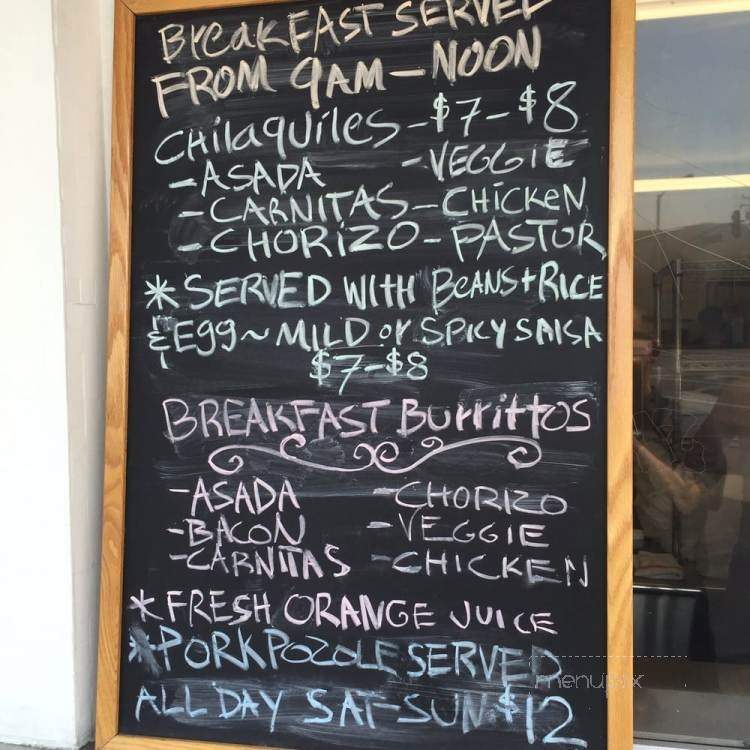 BreakFAST SERVED
FROM 9AM - NOON
CHilaquiles - $7 - $8
- ASADA - VEGGIE
- CARNITAS - CHiCKeN
- CHORiZO - PASTOR
* SERVED WITH BEANS + RICE
& EGG ~ MILD or SPICY SAlSA
$7 - $8
BREAKFAST Burrittos
- ASADA - CHORIZO
- BACON - VEGGIE
- CARNITAS - CHICKEN
* FRESH ORANGE JUICE
* PORK POZOLE SERVED
ALL DAY SAT-SUN $12
menupix